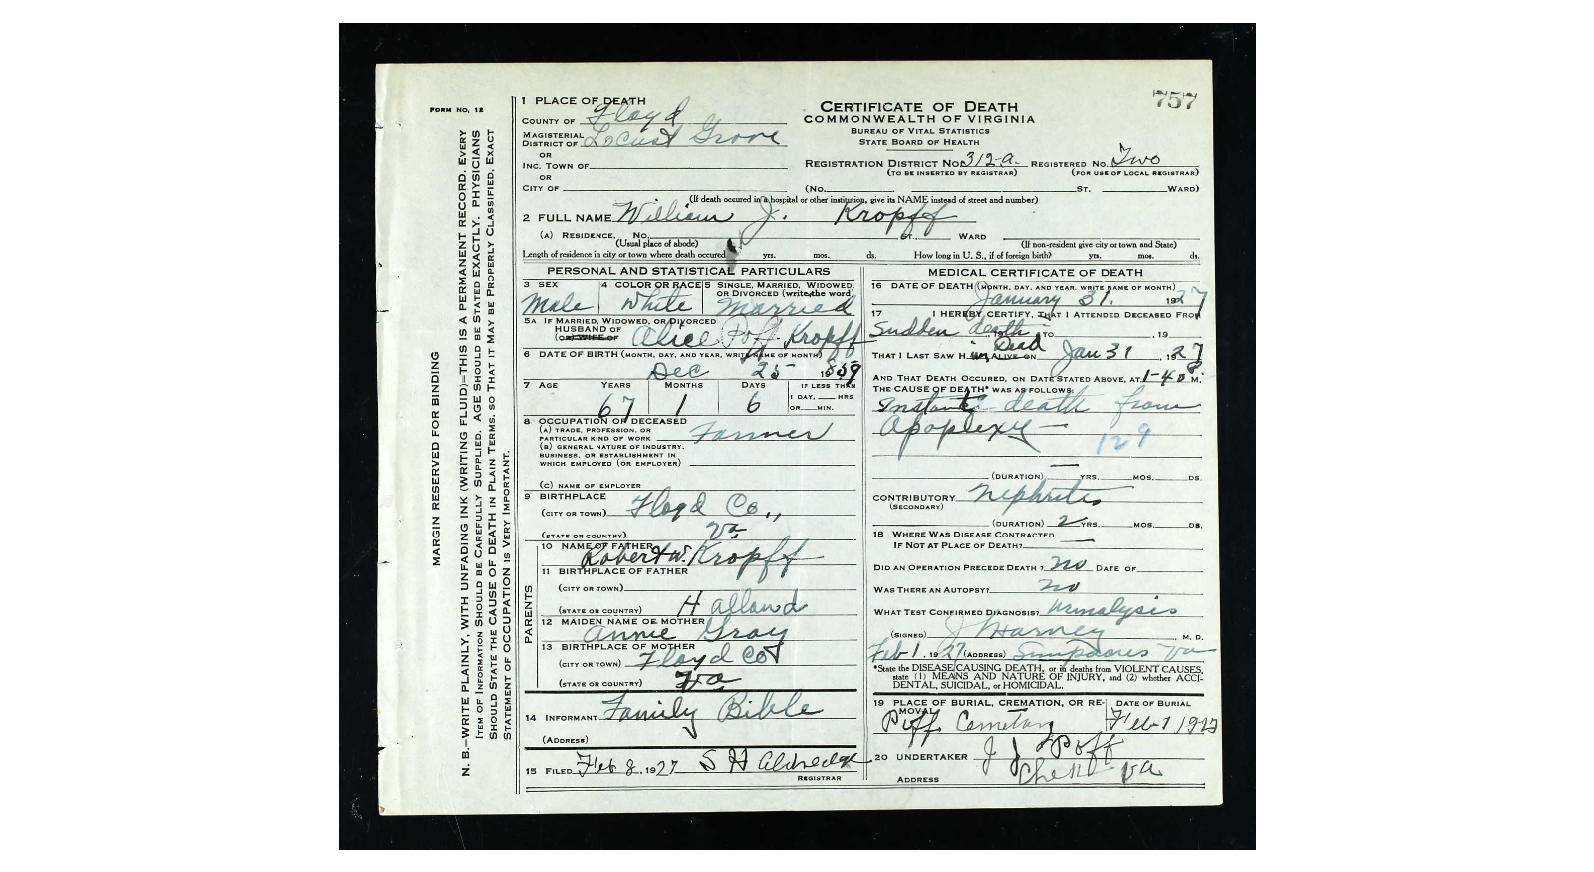 757
FORM NO. 12
MARGIN RESERVED FOR BINDING
N. B.—WRITE PLAINLY, WITH UNFADING INK (WRITING FLUID)—THIS IS A PERMANENT RECORD. EVERY
ITEM OF INFORMATION SHOULD BE CAREFULLY SUPPLIED. AGE SHOULD BE STATED EXACTLY. PHYSICIANS
SHOULD STATE THE CAUSE OF DEATH IN PLAIN TERMS, SO THAT IT MAY BE PROPERLY CLASSIFIED. EXACT
STATEMENT OF OCCUPATION IS VERY IMPORTANT.
1 PLACE OF DEATH
COUNTY OF Floyd
MAGISTERIAL DISTRICT OF Locust Grove
OR
INC. TOWN OF
OR
CITY OF
CERTIFICATE OF DEATH
COMMONWEALTH OF VIRGINIA
BUREAU OF VITAL STATISTICS
STATE BOARD OF HEALTH
REGISTRATION DISTRICT NO. 312-a. REGISTERED NO. Two
(TO BE INSERTED BY REGISTRAR) (FOR USE OF LOCAL REGISTRAR)
(NO. ST. WARD)
(If death occured in a hospital or other institution, give its NAME instead of street and number)
2 FULL NAME William J. Kropff
(A) RESIDENCE. NO. ST., WARD
(Usual place of abode) (If non-resident give city or town and State)
Length of residence in city or town where death occured yrs. mos. ds. How long in U. S., if of foreign birth? yrs. mos. ds.
PERSONAL AND STATISTICAL PARTICULARS
3 SEX Male
4 COLOR OR RACE White
5 SINGLE, MARRIED, WIDOWED OR DIVORCED (write the word) Married
5A IF MARRIED, WIDOWED, OR DIVORCED
HUSBAND OF Alice Poff Kropff
(OR) WIFE OF
6 DATE OF BIRTH (MONTH, DAY, AND YEAR, WRITE NAME OF MONTH)
Dec 25 1859
7 AGE YEARS MONTHS DAYS IF LESS THAN
1 DAY, HRS
OR MIN.
67 1 6
8 OCCUPATION OF DECEASED
(A) TRADE, PROFESSION, OR
PARTICULAR KIND OF WORK Farmer
(B) GENERAL NATURE OF INDUSTRY,
BUSINESS, OR ESTABLISHMENT IN
WHICH EMPLOYED (OR EMPLOYER)
(C) NAME OF EMPLOYER
9 BIRTHPLACE
(CITY OR TOWN) Floyd Co.,
(STATE OR COUNTRY) Va
PARENTS
10 NAME OF FATHER Robert W. Kropff
11 BIRTHPLACE OF FATHER
(CITY OR TOWN)
(STATE OR COUNTRY) Halland
12 MAIDEN NAME OF MOTHER
Annie Gray
13 BIRTHPLACE OF MOTHER
(CITY OR TOWN) Floyd Co
(STATE OR COUNTRY) Va
14 INFORMANT Family Bible
(ADDRESS)
15 FILED Feb 8, 1927 S H Aldredge
REGISTRAR
MEDICAL CERTIFICATE OF DEATH
16 DATE OF DEATH (MONTH, DAY, AND YEAR, WRITE NAME OF MONTH)
January 31. 1927
17 I HEREBY CERTIFY, THAT I ATTENDED DECEASED FROM
Sudden death, 19 TO , 19
THAT I LAST SAW HIM Dead ALIVE ON Jan 31, 1927
AND THAT DEATH OCCURED, ON DATE STATED ABOVE, AT 1-40 P. M.
THE CAUSE OF DEATH* WAS AS FOLLOWS:
Instant death from
Apoplexy —
129
(DURATION) YRS. MOS. DS.
CONTRIBUTORY Nephritis
(SECONDARY)
(DURATION) 2 YRS. MOS. DS.
18 WHERE WAS DISEASE CONTRACTED
IF NOT AT PLACE OF DEATH?
DID AN OPERATION PRECEDE DEATH? No DATE OF
WAS THERE AN AUTOPSY? No
WHAT TEST CONFIRMED DIAGNOSIS? Urinalysis
(SIGNED) J Harney, M. D.
Feb 1, 1927 (ADDRESS) Simpsons Va
*State the DISEASE CAUSING DEATH, or in deaths from VIOLENT CAUSES,
state (1) MEANS AND NATURE OF INJURY, and (2) whether ACCI-
DENTAL, SUICIDAL, or HOMICIDAL.
19 PLACE OF BURIAL, CREMATION, OR RE-
MOVAL DATE OF BURIAL
Poff Cemetary Feb 1 1927
20 UNDERTAKER J J Poff
ADDRESS Va